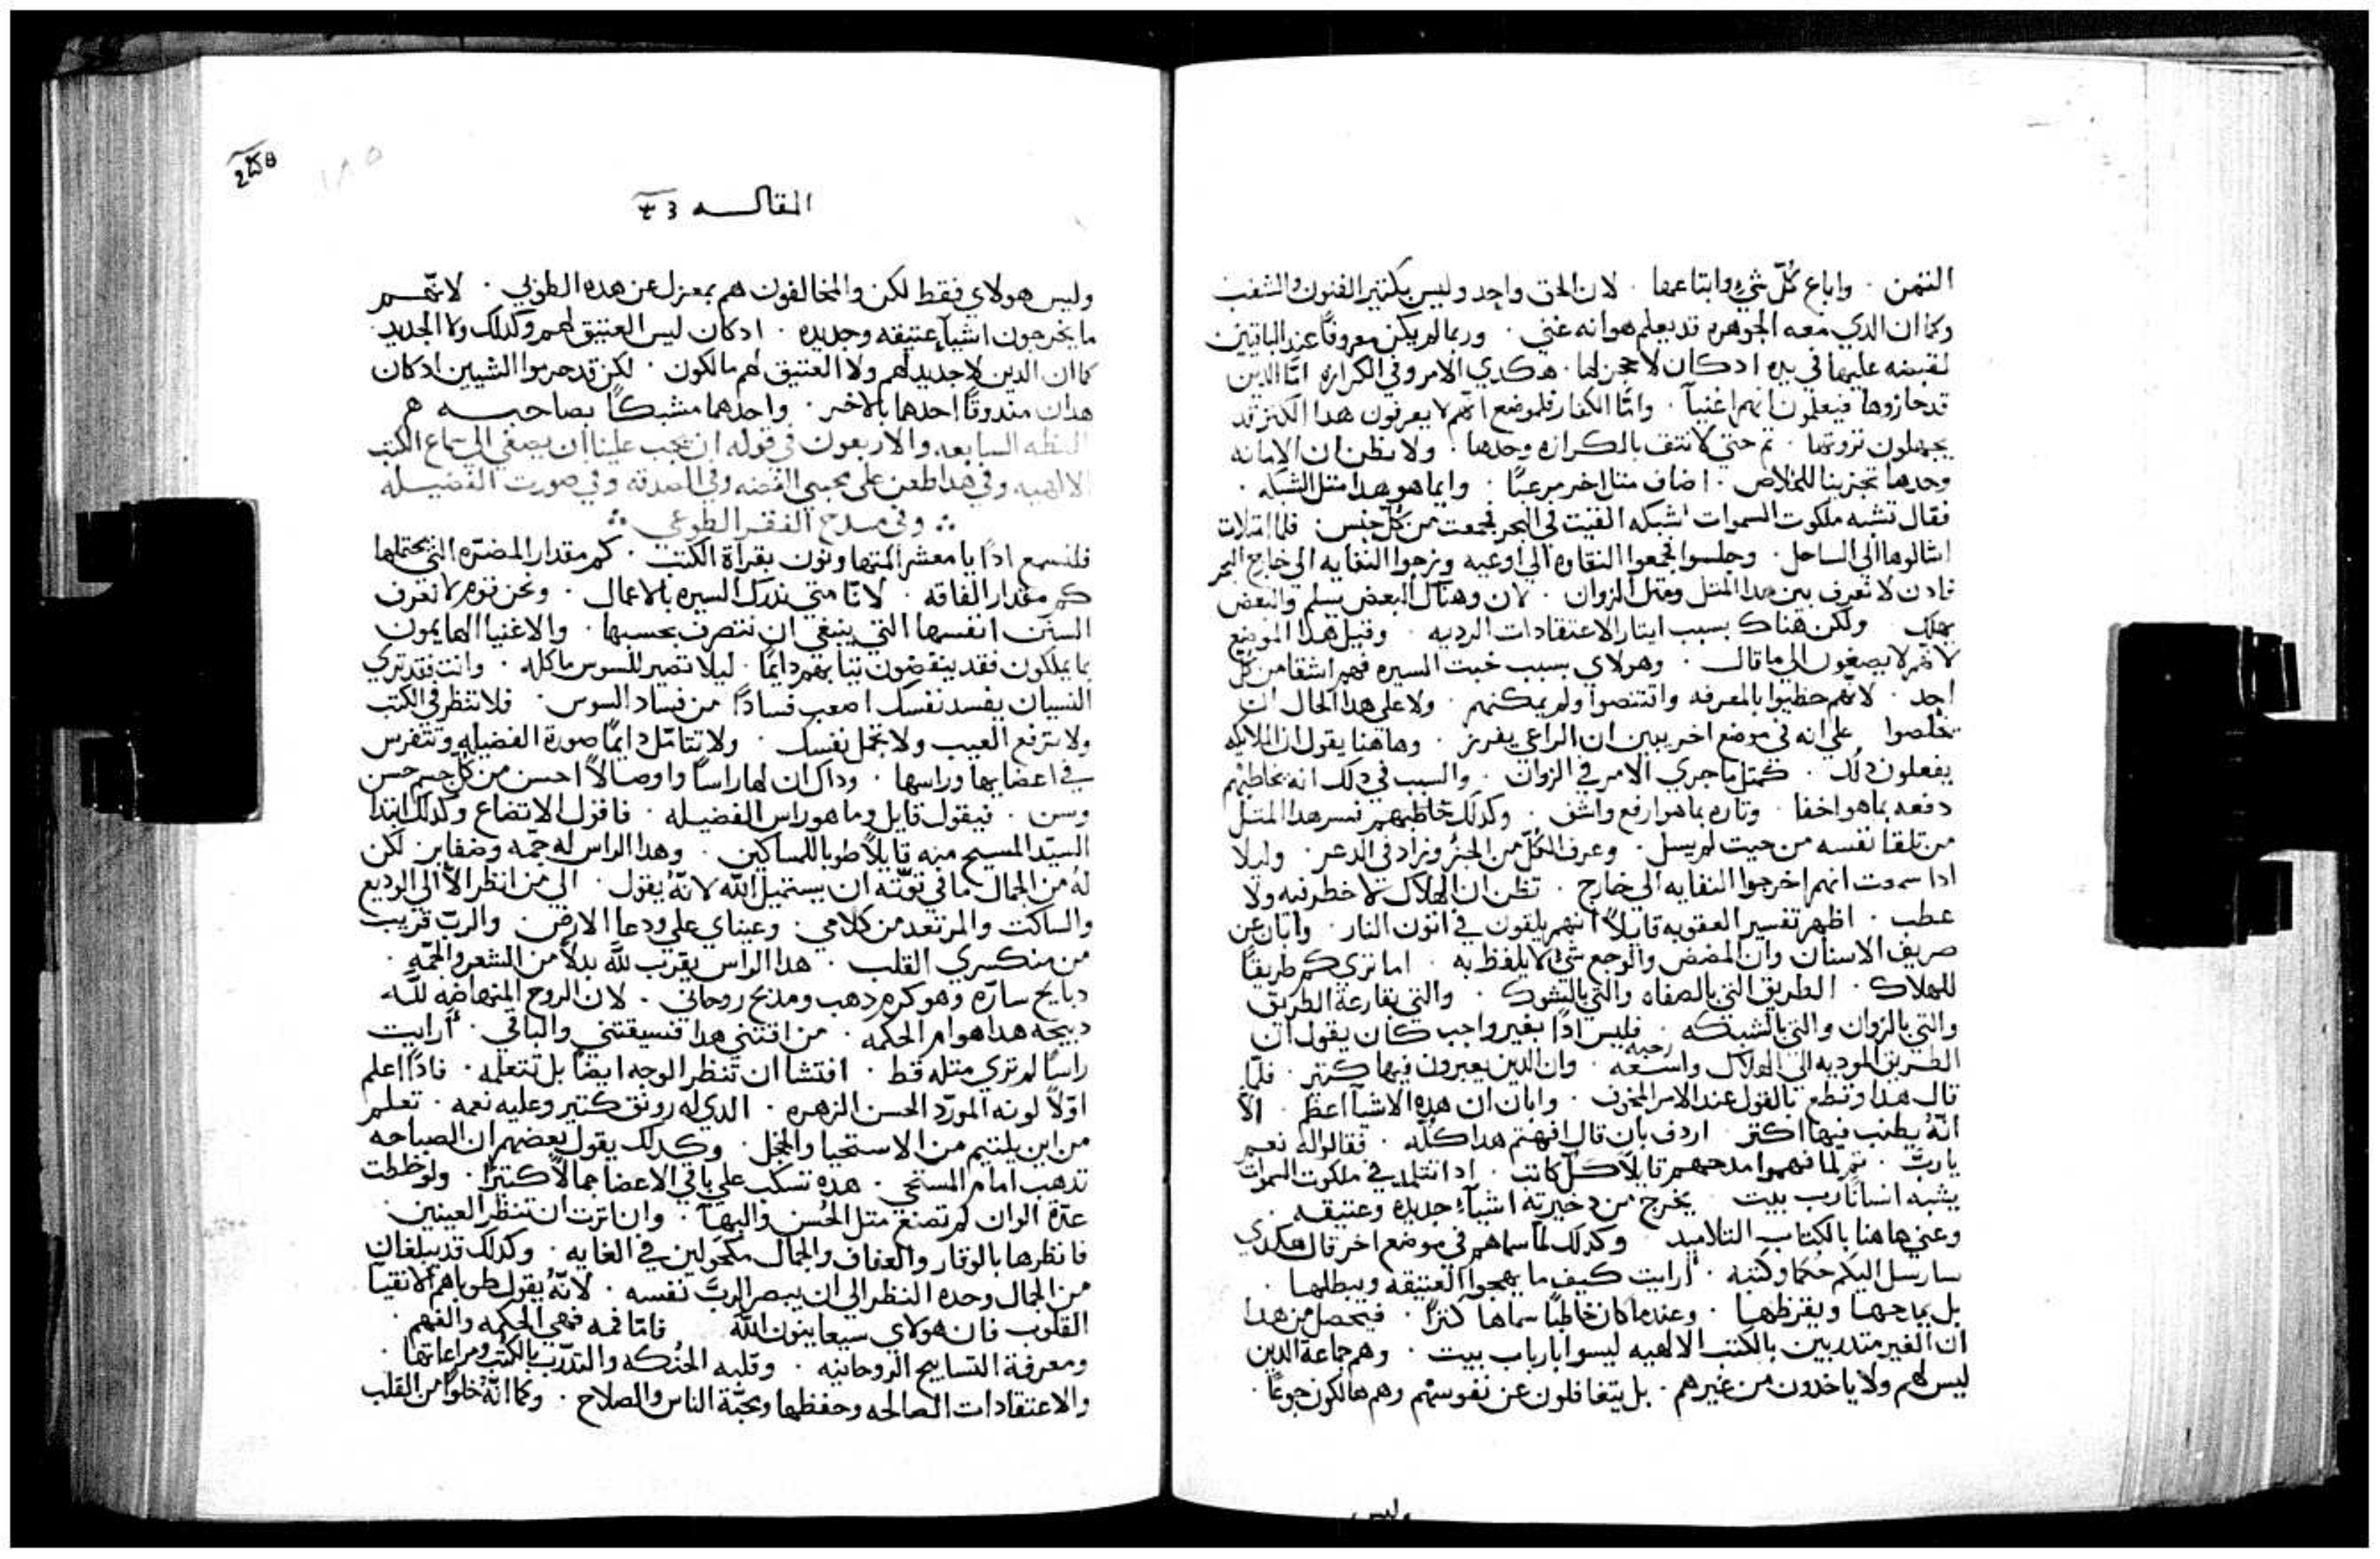 الثمن . واباع كُلّ شي وابتاعها . لان الحق واحد وليس بكتير الفنون والشغب
وكما ان الدي معه الجوهره قد يعلم هو انه غني . وربما لم يكن معروفًا عند الباقيين
لقبضه عليها في يده ادكان لا حجر لها . هكدي الامر وفي الكرازه امّا الدين
قد حازوها فيعلمون انهم اغنيآ . وامّا الكفار فلموضع انّهم لا يعرفون هدا الكنز قد
يجهلون ثروتها . تم حتي لا نتف بالكرازه وحدها . ولا نظن ان الامانه
وحدها تجزينا للخلاص . اضاف متلا اخر مرعبًا . وايما هو هدا متل الشبكه .
فقال تشبه ملكوت السموات شبكه القيت في البحر فجمعت من كُل جنس فلما امتلات
اشالوها الي الساحل . وجلسوا فجمعوا النقاوه الي اوعيه وزجوا النفايه الي خارج البحر
فادن لا تعرف بين هدا المتل ومتل الزوان . لان وهناك البعض يسلم والبعض
يهلك . ولكن هناك بسبب ايتار الاعتقادات الرديه . وقبل هدا الموضع
لانهم لا يصغون الي ما قال . وهولاي بسبب خبت السيره فهم اشقا من كل
احد . لانّهم حظيوا بالمعرفه واقتنصوا ولم يمكنهم . ولا علي هدا الحال ان
تخلصوا علي انه في موضع اخر يبين ان الراعي يفرز . وهاهنا يقول ان الملايكه
يفعلون دلك . كمتل ما جري الامر في الزوان . والسبب في دلك انه يخاطبهم
دفعه بما هو اخفا . وتاره بما هو ارفع واشف . وكدلك خاطبهم فسر هدا المتل
من تلقا نفسه من حيت لم يسل . وعرف الكُلّ من الجزُ وزاد في الدعر . وليلا
ادا سمعت انهم اخرجوا النفايه الي خارج . تظن ان الهلاك لا خطر فيه ولا
عطب . اظهر تفسير العقوبه قايلاً انهم يلقون في اتون النار . وابان عن
صريف الاسنان وان المضض والوجع شي لا يلفظ به . اما تري كم طريقًا
للهلاك . الطريق التي بالصفاه والتي بالشوك . والتي بقارعة الطريق
والتي بالزوان والتي بالشبكه . فليس ادًا بغير واجب كان يقول ان
الطريق الموديه الي الهلاك واسعه رحبه . وان الدين يعبرون فيها كتير . فلمّا
قال هدا وقطع بالقول عند الامر المخوف . وابان ان هده الاشيآ اعظم . الا
انّهُ يطنب فيها اكتر . اردف بان قال افهمتم هدا كُلّه . فقالوا له نعم
يا ربّ . تم لمّا فهموا مدحهم قايلاً كلّ كاتب . ادا تتلمد في ملكوت السموات
يشبه انسانًا رب بيت . يخرج من دخيرته اشيآء جديده وعتيقه .
وعني هاهنا بالكتاب التلاميد . وكدلك لمّا سماهم في موضع اخر قال هكدي
سارسل اليكم حكما وكتبه . ارايت كيف ما يهجوا العتيقه ويبطلها .
بل يمدحها ويقرظها . وعندما كان خاطبًا سماها كنزًا . فيحصل من هدا
ان الغير متدربين بالكتب الالهيه ليسوا بارباب بيت . وهم جماعة الدين
ليس لهم ولا ياخدون من غيرهم . بل يتغافلون عن نفوسهم وهم هالكون جوعًا .
المقاله
وليس هولاي فقط لكن والمخالفون هم بمعزل عن هده الطوبي . لانّهم
ما يخرجون اشيآء عتيقه وجديده . ادكان ليس العتيق لهم وكدلك ولا الجديد
كما ان الدين لا جديد لهم ولا العتيق لهم مالكون . لكن قد حرموا الشيين ادكان
هدان احدهما بالاخر . واحدهما مشبكًا بصاحبه
العظه السابعه والاربعون في قوله انه يجب علينا ان نصغي الي سماع الكتب
الالهيه وفي هدا طعن علي محبي الفضه وفي الصدقه وفي صورت الفضيله
وفي مدح الفقر الطوعي
فلنسمع ادًا يا معشر المتهاونون بقراة الكتب . كم مقدار المضرّه التي نحتملها
كم مقدار الفاقه . لانّا متي ندرك السيره بالاعمال . ونحن قوم لا نعرف
السنن انفسها التي ينبغي ان نتصرف بحسبها . والاغنيا الهايمون
بما يملكون فقد ينفضون تيابهم دايمًا . ليلا تصير للسوس ماكله . وانت فقد تري
النسيان يفسد نفسك اصعب فسادًا من فساد السوس . فلا تنظر في الكتب
ولا ترفع العيب ولا تجمل نفسك . ولا تتامّل دايمًا صورة الفضيله وتتفرس
في اعضايها وراسها . وداك ان لها راسًا واوصالاً احسن من كل جسم حسن
وسن . فيقول قايل وما هو راس الفضيله . فاقول الاتضاع وكدلك ابتدا
السيّد المسيح منه قايلاً طوبا للمساكين . وهدا الراس له جمّه وضفاير . لكن
لهُ من الجمال ما في قوّته ان يستميل اللّه لانّهُ يقول . الي من انظر الاّ الي الوديع
والساكت والمرتعد من كلامي . وعيناي علي ودعا الارض . والربّ قريب
من منكسري القلب . هدا الراس يقرب للّه بدلاً من الشعر والجمّه .
دبايح سارّه وهو كره دهب ومدبح روحاني . لان الروح المتهاضه للّه
دبيحه هدا هو ام الحكمه . من اقتني هدا فسيقتني والباقي . ارايت
راسًا لم تري متله قط . افتشا ان تنظر الوجه ايضًا بل تتعلمه . فادًا اعلم
اوّلاً لونه المورّد الحسن الزهره . الدي له رونق كتير وعليه نعمه . تعلم
من اين يلتيم من الاستحيا والخجل . وكدلك يقول بعضهم ان الصباحه
تدهب امام المستحي . هده تسكب علي باقي الاعضا جمالاً كتيرًا . ولو خلطت
عدّة الوان لم تصنع متل الحُسن والبهآ . وان اترت ان تنظر العينين
فانظرها بالوقار والعفاف والجمال مكحولين في الغايه . وكدلك قد يبلغان
من الجمال وحده النظر الي ان يبصر الربّ نفسه . لانّهُ يقول طوباهم الانقيآ
القلوب فان هولاي سيعاينون اللّه فامّا فمه فهي الحكمه والفهم .
ومعرفة التسابيح الروحانيه . وقلبه الحُنكه والتدرّب بالكتب ومراعاتها .
والاعتقادات الصالحه وحفظها ومحبّة الناس والصلاح . وكما انّهُ خلوًا من القلب